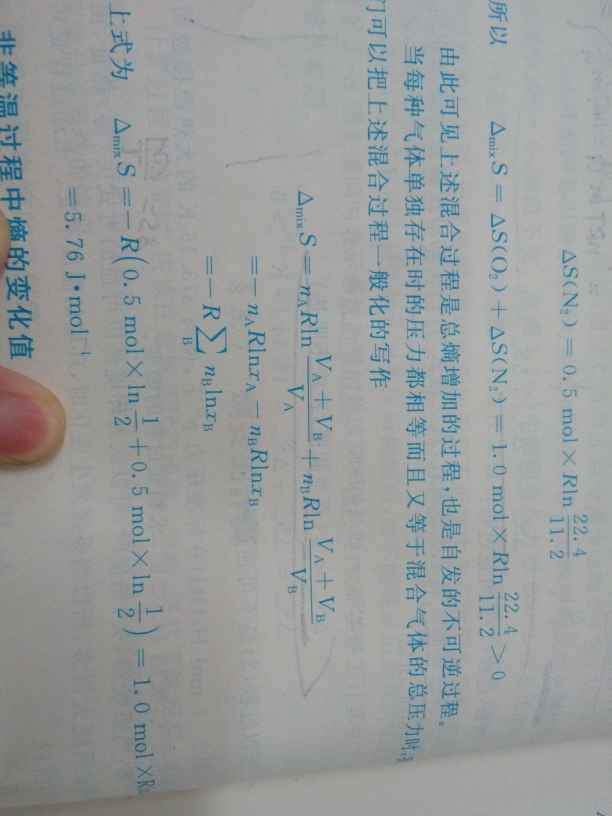 ΔS(N₂) = 0.5 mol × Rln 22.4/11.2
所以 ΔmixS = ΔS(O₂) + ΔS(N₂) = 1.0 mol × Rln 22.4/11.2 > 0
由此可见上述混合过程是总熵增加的过程,也是自发的不可逆过程。
当每种气体单独存在时的压力都相等而且又等于混合气体的总压力时,
们可以把上述混合过程一般化的写作
ΔmixS = nA Rln (VA + VB)/VA + nB Rln (VA + VB)/VB
= − nA RlnxA − nB RlnxB
= − R ∑B nB lnxB
上式为 ΔmixS = − R(0.5 mol × ln 1/2 + 0.5 mol × ln 1/2) = 1.0 mol × R
= 5.76 J·mol⁻¹
非等温过程中熵的变化值